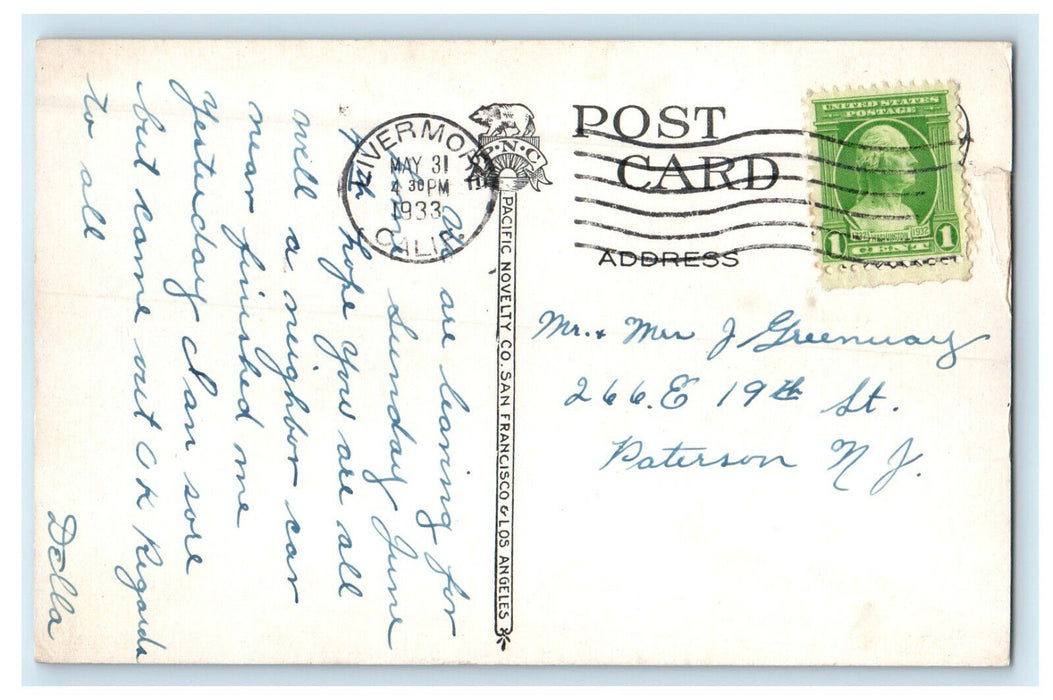 are leaving for
Sunday June
hope you are all
well a neighbor car
near finished me
Yesterday I am sore
but came out O K Regards
to all
Della
LIVERMORE
MAY 31
4 30 PM
1933
CALIF.
P.N.C.
PACIFIC NOVELTY CO. SAN FRANCISCO & LOS ANGELES
POST
CARD
ADDRESS
UNITED STATES
POSTAGE
1732 WASHINGTON 1932
1 CENT 1
Mr. & Mrs J Greenway
266. E 19th St.
Paterson N J.